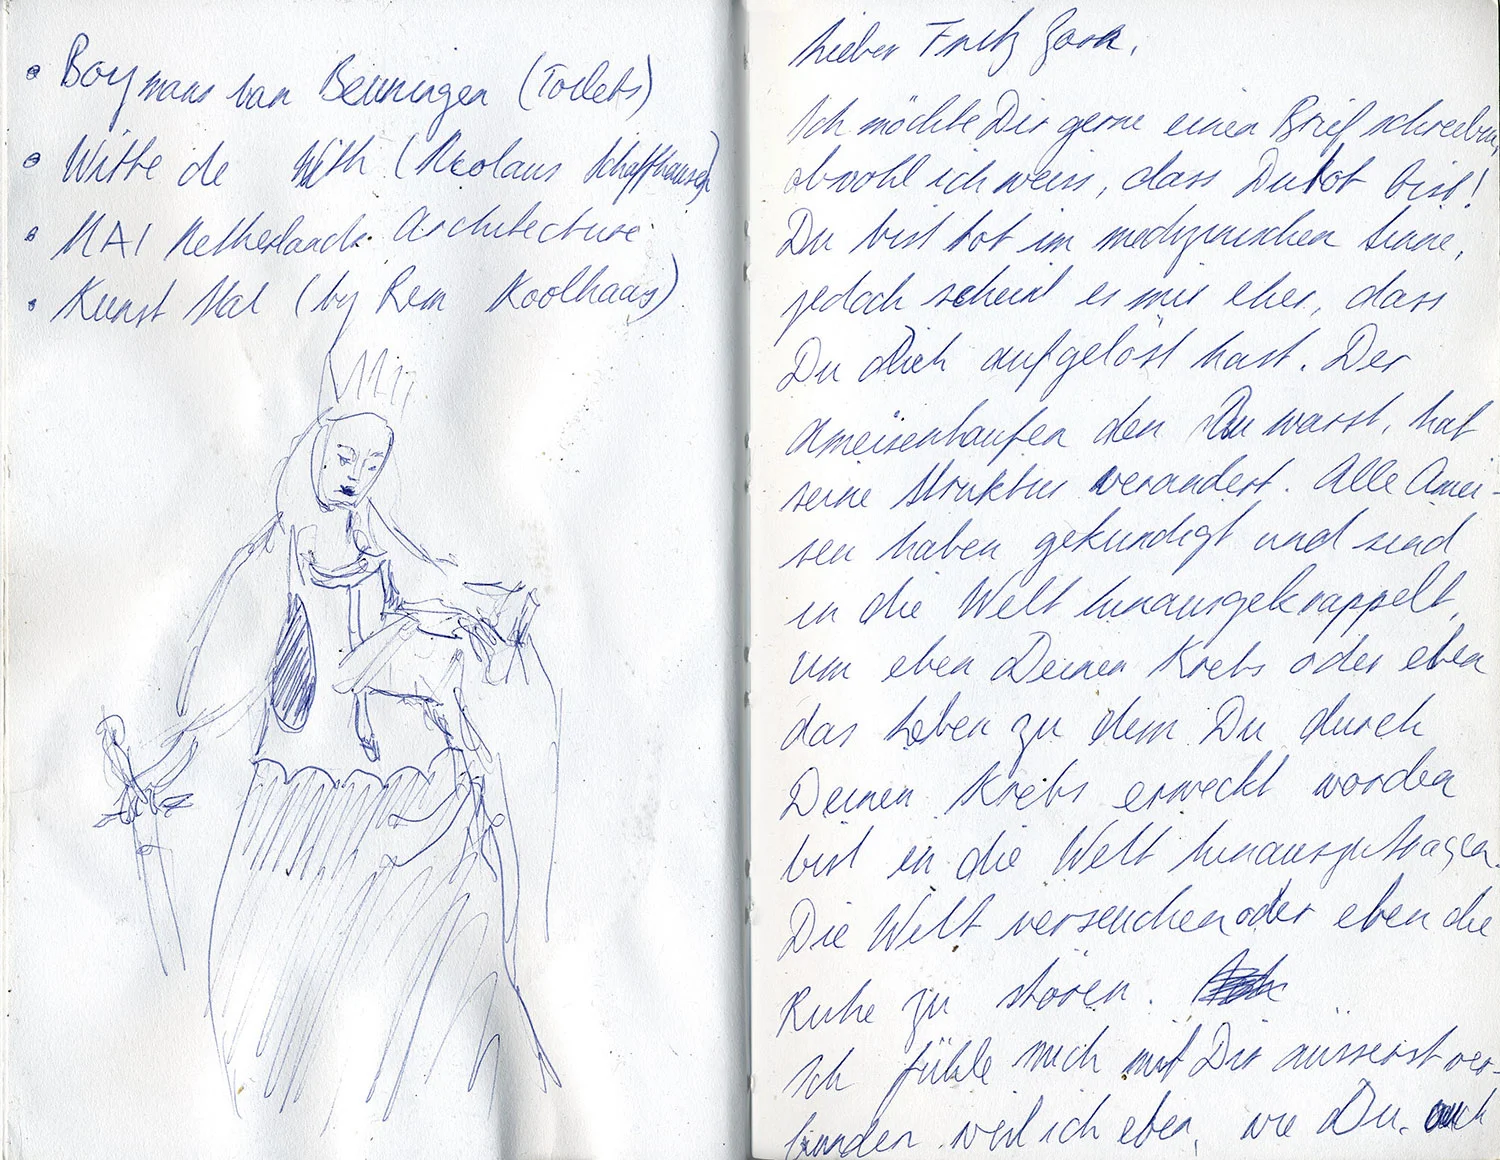 • Boymans van Beuningen (Toilets)
• Witte de With (Nicolaus Schaffhausen)
• NAI Netherlands Architecture
• Kunst Hal (by Rem Koolhaas)
Lieber Fritz Zorn,
Ich möchte Dir gerne einen Brief schreiben,
obwohl ich weiss, dass Du tot bist!
Du bist tot im medizinischen Sinne,
jedoch scheint es mir eher, dass
Du Dich aufgelöst hast. Der
Ameisenhaufen den Du warst, hat
seine Struktur verändert. Alle Amei-
sen haben gekündigt und sind
in die Welt hinausgekrappelt,
um eben Deinen Krebs oder eben
das Leben zu dem Du durch
Deinen Krebs erweckt worden
bist in die Welt hinauszutragen.
Die Welt verseuchen oder eben die
Ruhe zu stören.
Ich fühle mich mit Dir äusserst ver-
bunden weil ich eben, wie Du, auch